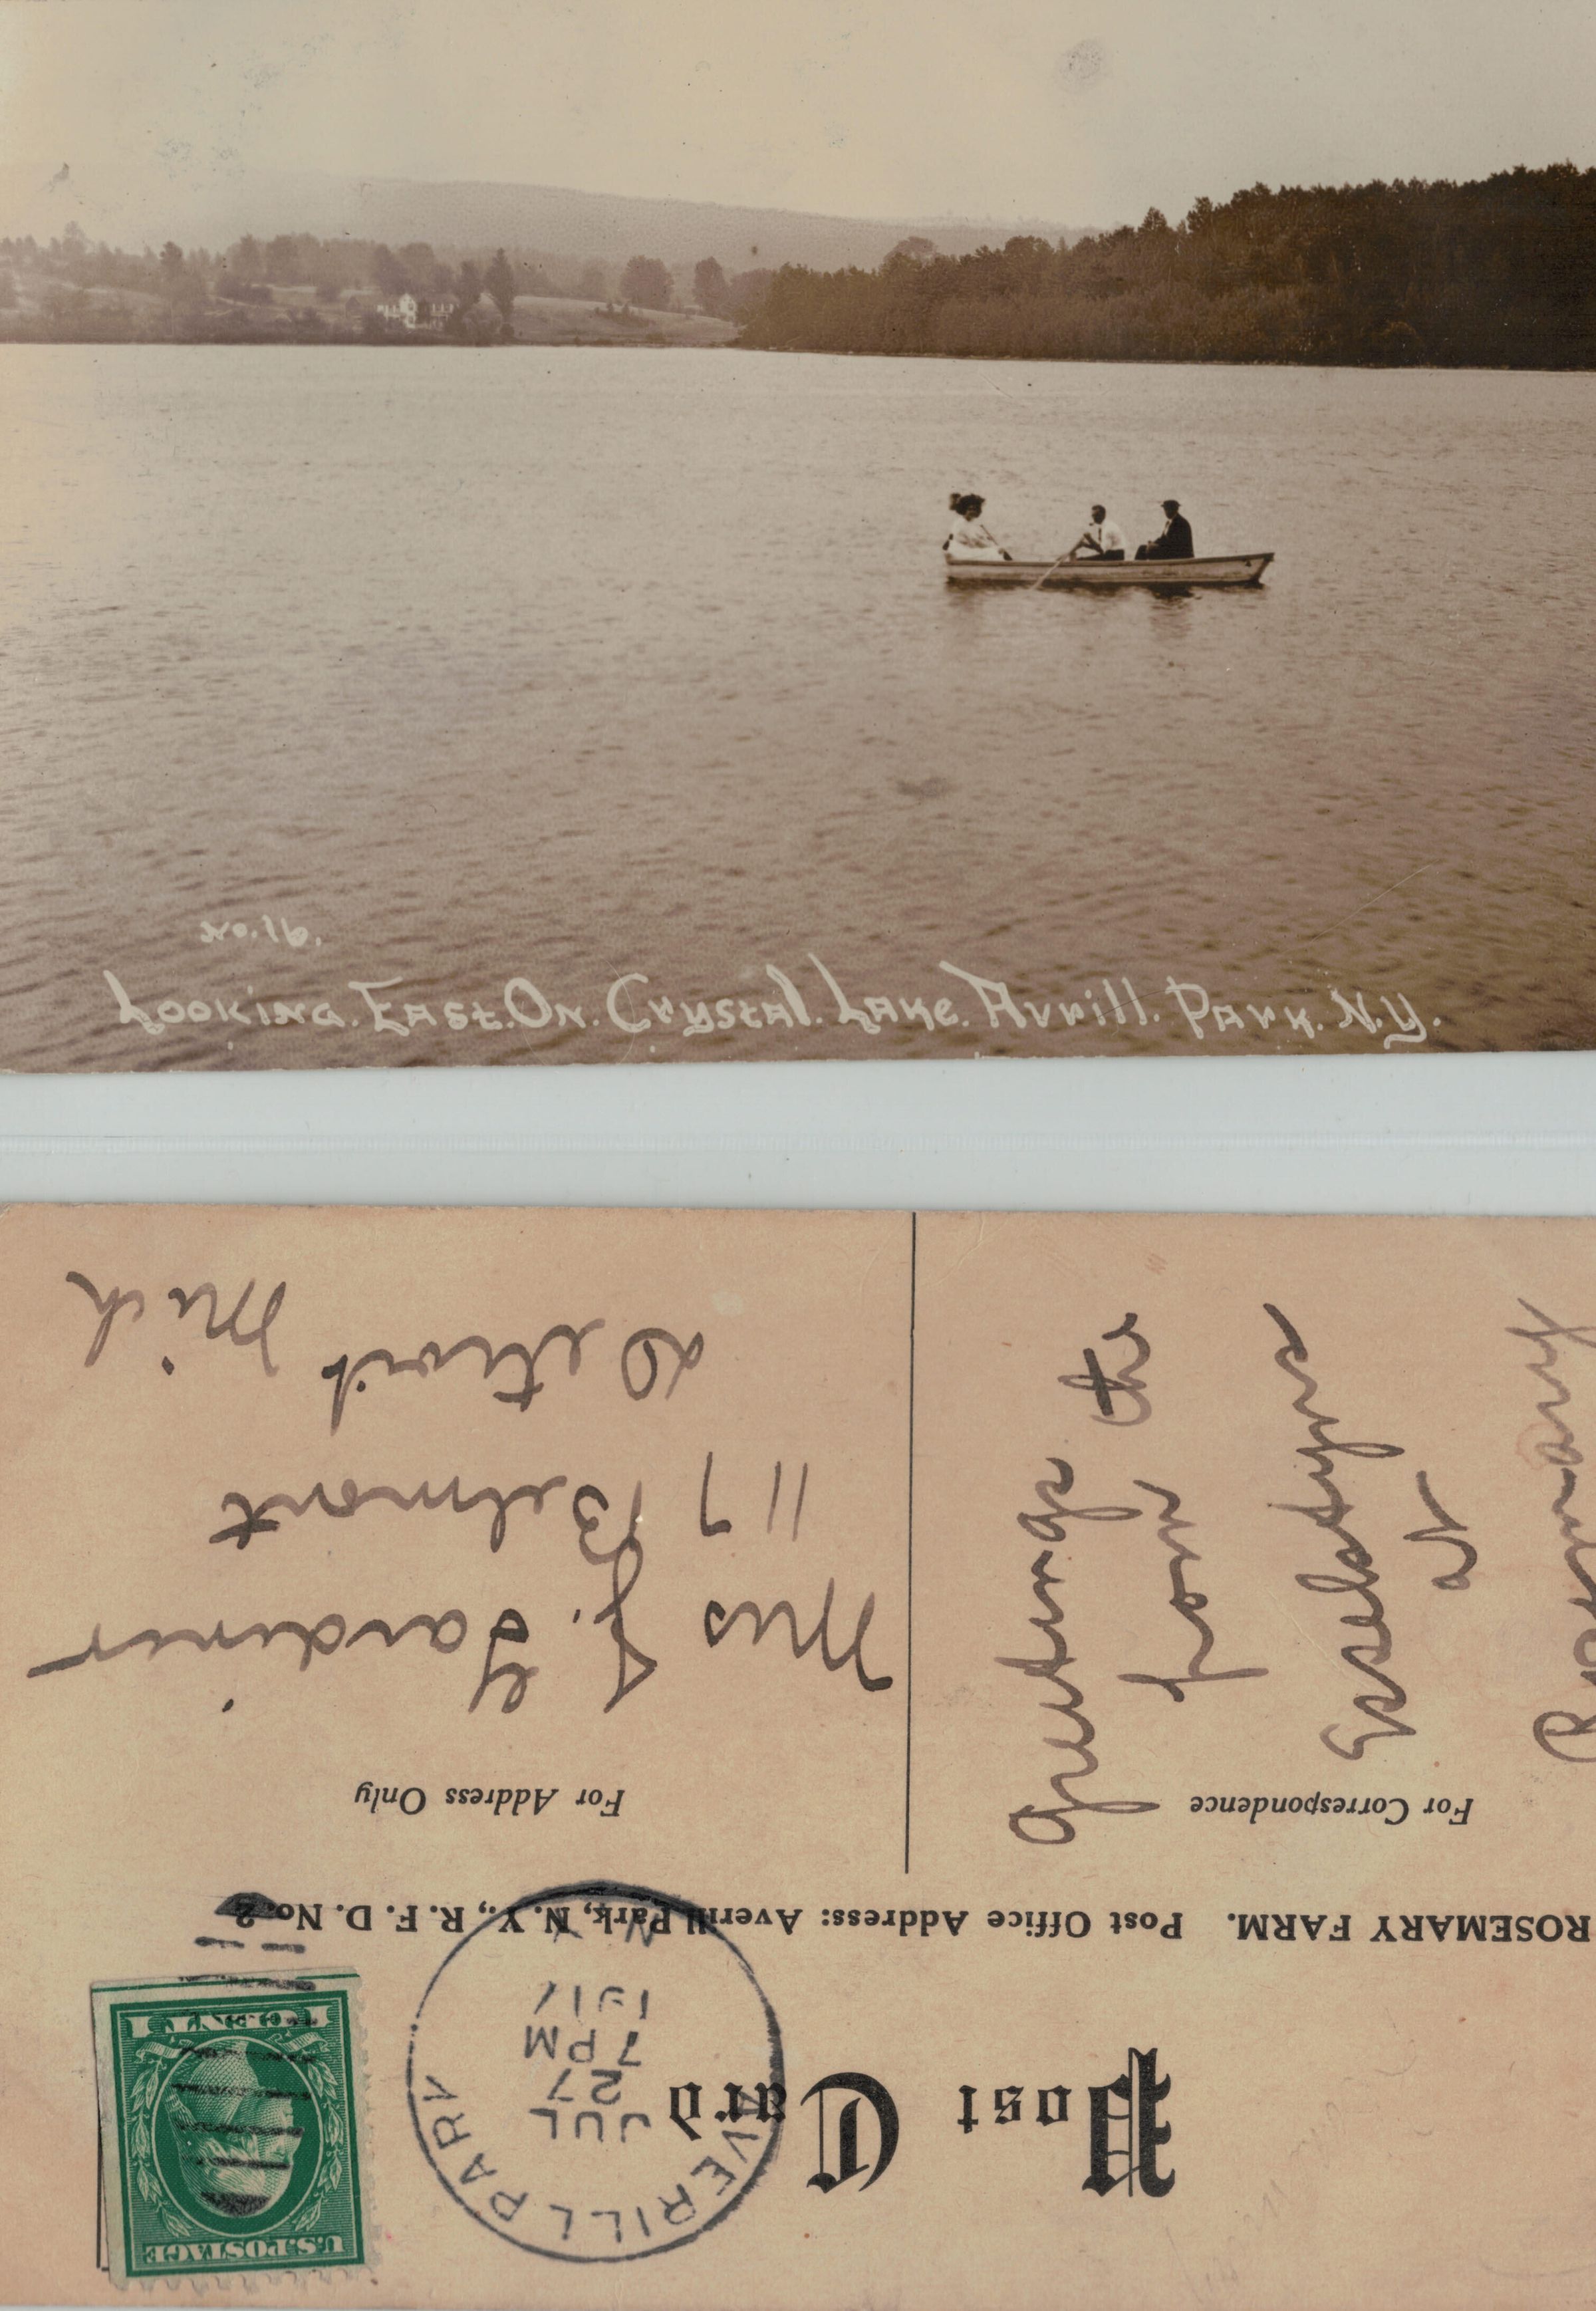 No. 16.
Looking. East. On. Crystal. Lake. Avrill. Park. N.Y.
Post Card
U.S. POSTAGE
1 CENT 1
AVERILL PARK
N.Y.
JUL
27
7 PM
1917
ROSEMARY FARM. Post Office Address: Averill Park, N. Y., R. F. D. No. 2
For Correspondence
Greetings
from the
Esselstyns
at
Rosemary
For Address Only
Mrs J. Gardiner
117 Belmont
Detroit Mich